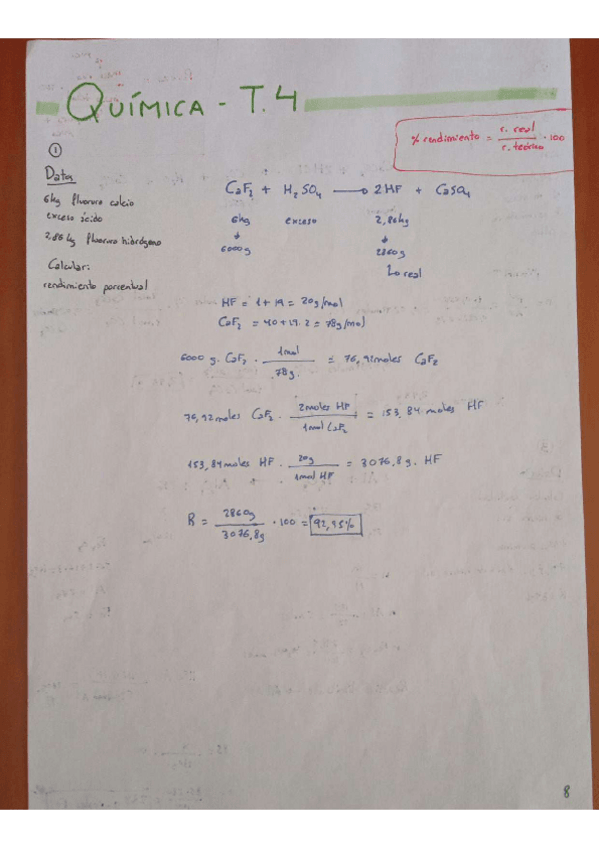 QUÍMICA - T.4
% rendimiento = r. real / r. teórico · 100
①
Datos
6kg fluoruro calcio
exceso ácido
2,86 kg fluoruro hidrógeno
Calcular:
rendimiento porcentual
CaF₂ + H₂SO₄ → 2HF + CaSO₄
6kg exceso 2,86kg
↓ ↓
6000g 2860g
↳ real
HF = 1+19 = 20g/mol
CaF₂ = 40+19·2 = 78g/mol
6000 g. CaF₂ · 1mol / 78g. = 76,92moles CaF₂
76,92moles CaF₂ · 2moles HF / 1mol CaF₂ = 153,84 moles HF
153,84moles HF · 20g / 1mol HF = 3076,8g. HF
R = 2860g / 3076,8g · 100 = 92,95%
8